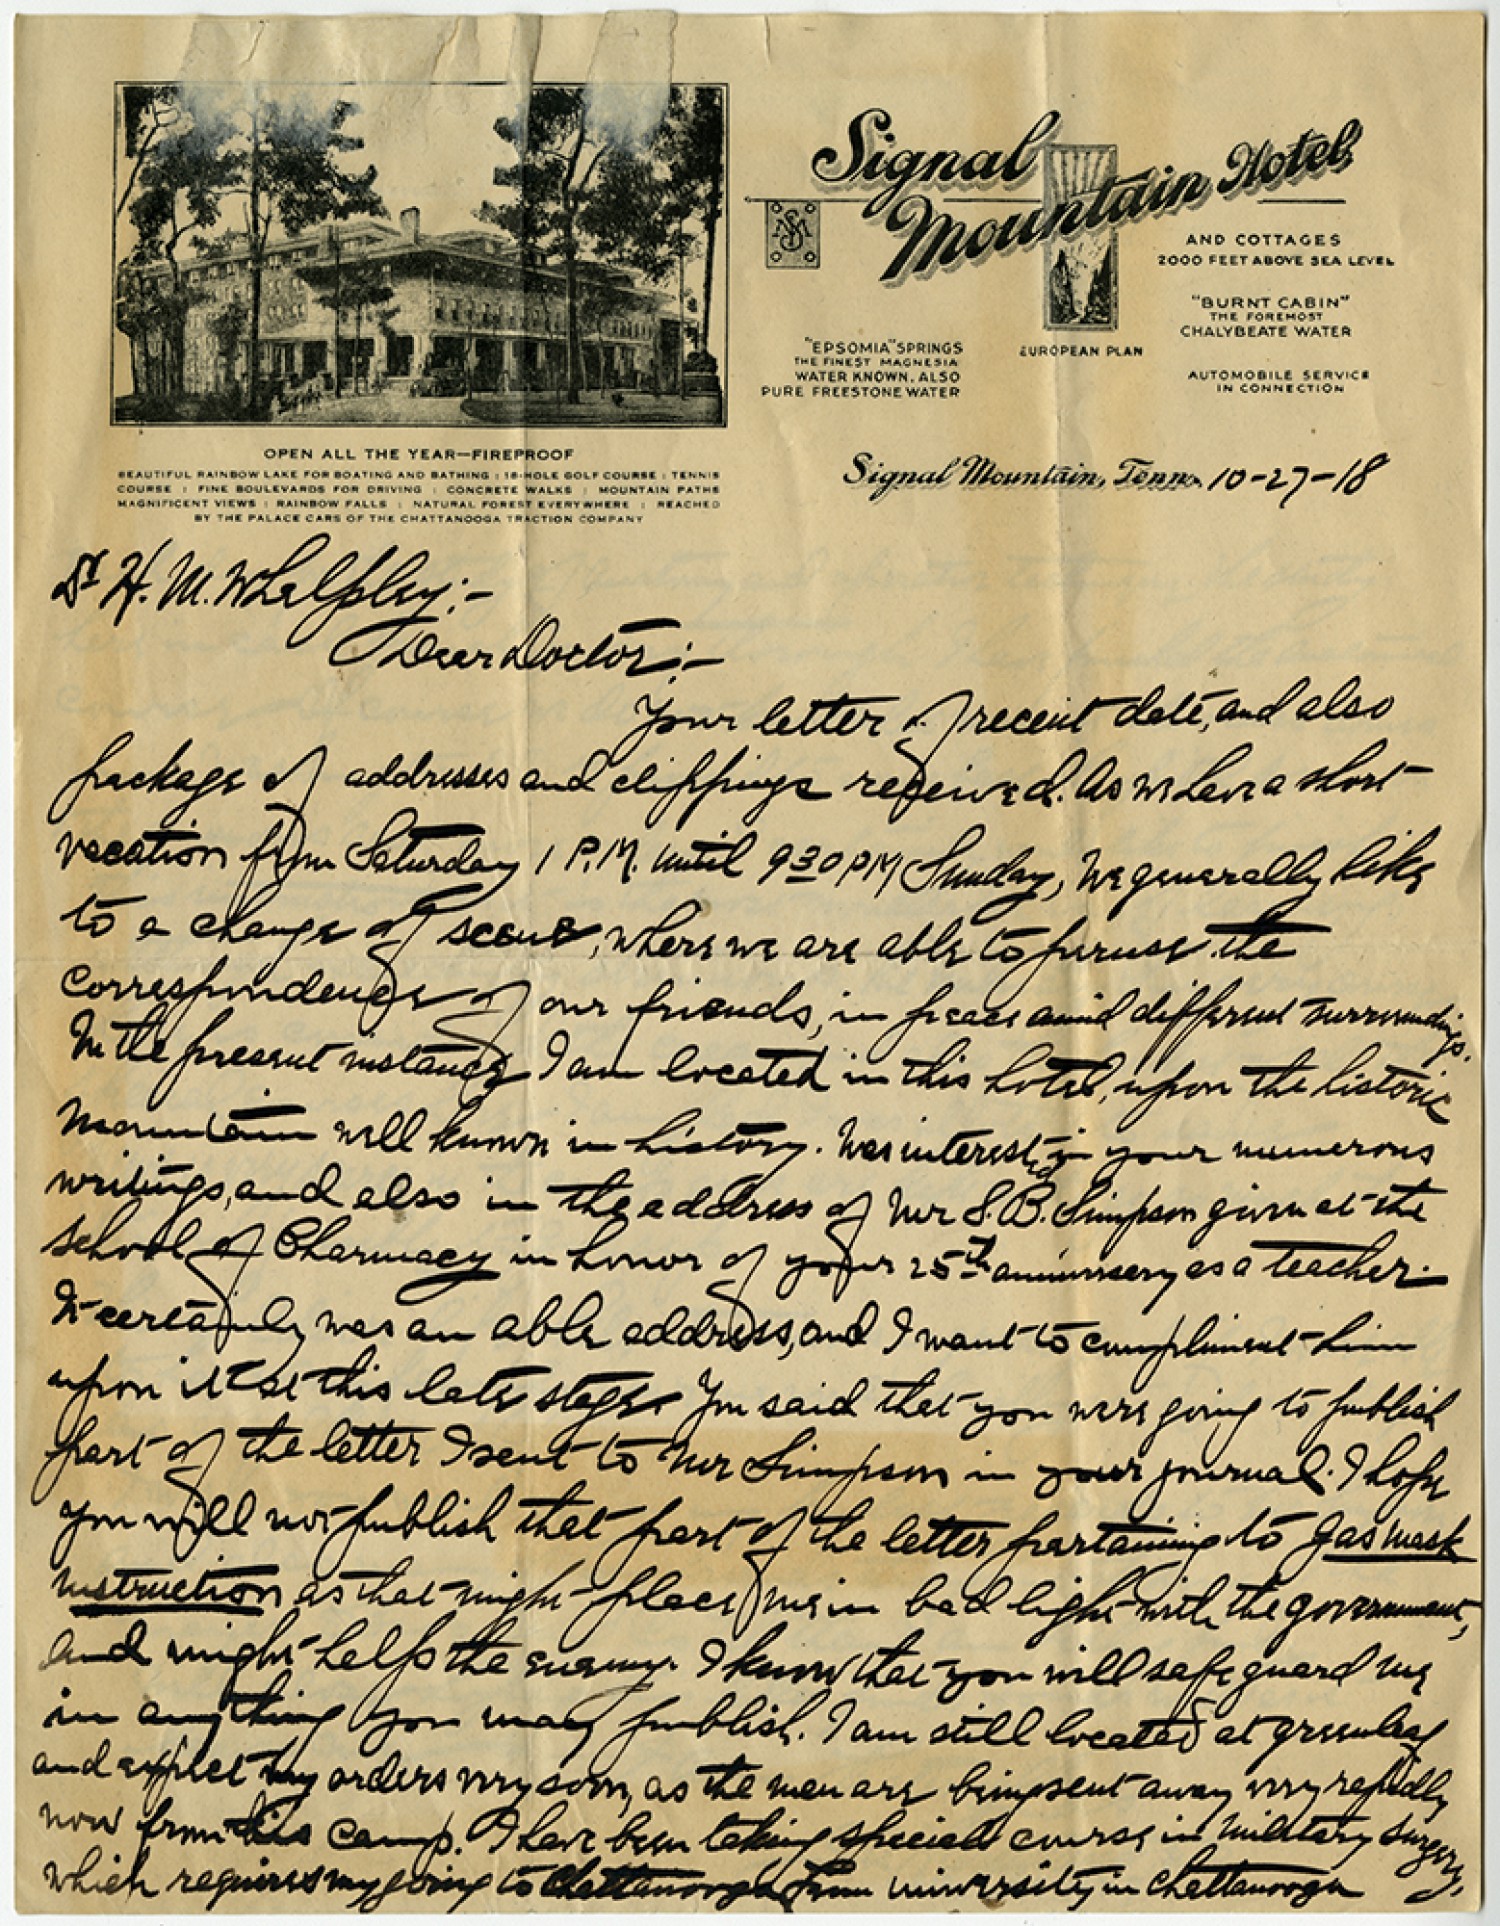 Signal
Mountain Hotel
AND COTTAGES
2000 FEET ABOVE SEA LEVEL
"BURNT CABIN"
THE FOREMOST
CHALYBEATE WATER
"EPSOMIA" SPRINGS
THE FINEST MAGNESIA
WATER KNOWN. ALSO
PURE FREESTONE WATER
EUROPEAN PLAN
AUTOMOBILE SERVICE
IN CONNECTION
OPEN ALL THE YEAR—FIREPROOF
BEAUTIFUL RAINBOW LAKE FOR BOATING AND BATHING : 18-HOLE GOLF COURSE : TENNIS
COURSE : FINE BOULEVARDS FOR DRIVING : CONCRETE WALKS : MOUNTAIN PATHS
MAGNIFICENT VIEWS : RAINBOW FALLS : NATURAL FOREST EVERYWHERE : REACHED
BY THE PALACE CARS OF THE CHATTANOOGA TRACTION COMPANY
Signal Mountain, Tenn. 10-27-18
Dr H. M. Whelpley:-
Dear Doctor:-
Your letter of recent date, and also
package of addresses and clippings received. As we have a short
vacation from Saturday 1 P.M. until 9 30 PM Sunday, we generally like
to a change of scene, where we are able to peruse the
correspondence of our friends, in peace amid different surroundings.
In the present instance I am located in this hotel, upon the historic
mountain well known in history. Was interested in your numerous
writings, and also in the address of Mr S. B. Simpson given at the
school of Pharmacy in honor of your 25th anniversary as a teacher.
It certainly was an able address, and I want to compliment him
upon it at this late stage. You said that you were going to publish
part of the letter I sent to Mr Simpson in your journal. I hope
you will not publish that part of the letter pertaining to gas mask
instruction as that might place me in bad light with the government,
and might help the enemy. I know that you will safeguard me
in anything you may publish. I am still located at Greenleaf
and expect my orders very soon, as the men are being sent away very rapidly
now from this camp. I have been taking special course in military surgery,
which requires my going to Chattanooga from university in Chattanooga